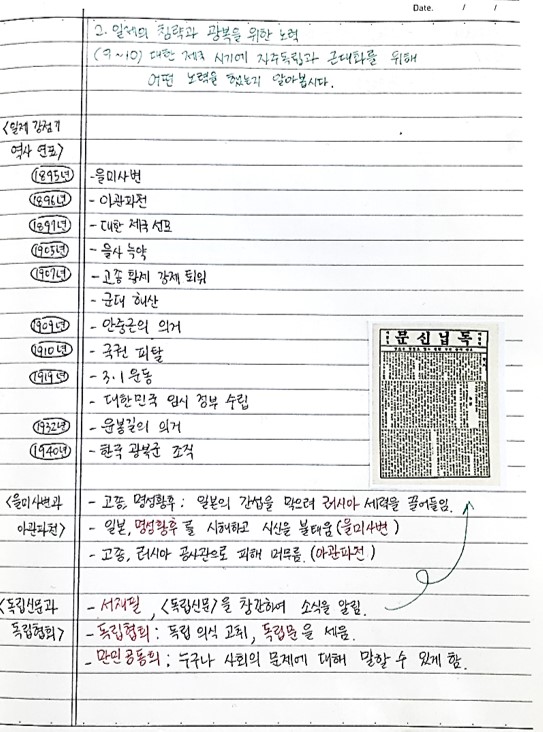 Date. / /
2. 일제의 침략과 광복을 위한 노력
(9~10) 대한 제국 시기에 자주독립과 근대화를 위해
어떤 노력을 했는지 알아봅시다.
<일제 강점기
역사 연표>
1895년 - 을미사변
1896년 - 아관파천
1897년 - 대한 제국 선포
1905년 - 을사늑약
1907년 - 고종 황제 강제 퇴위
- 군대 해산
1909년 - 안중근의 의거
1910년 - 국권 피탈
1919년 - 3.1 운동
- 대한민국 임시 정부 수립
1932년 - 윤봉길의 의거
1940년 - 한국 광복군 조직
문신닙독
<을미사변과 - 고종, 명성황후 : 일본의 간섭을 막으려 러시아 세력을 끌어들임.
아관파천> - 일본, 명성황후를 시해하고 시신을 불태움 (을미사변)
- 고종, 러시아 공사관으로 피해 머무름. (아관파천)
<독립신문과 - 서재필, <독립신문>을 창간하여 소식을 알림.
독립협회> - 독립협회 : 독립 의식 고취, 독립문을 세움.
- 만민 공동회 : 누구나 사회의 문제에 대해 말할 수 있게 함.